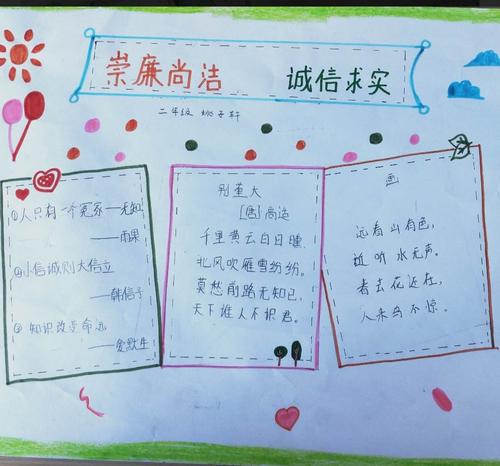 崇廉尚洁 诚信求实
二年级 姚子轩
①人只有一个冤家——无知
——雨果
②小信诚则大信立
——韩信子
③ 知识改变命运
别董大
[唐]高适
千里黄云白日曛,
北风吹雁雪纷纷。
莫愁前路无知己,
天下谁人不识君。
画
远看山有色,
近听水无声。
春去花还在,
人来鸟不惊。